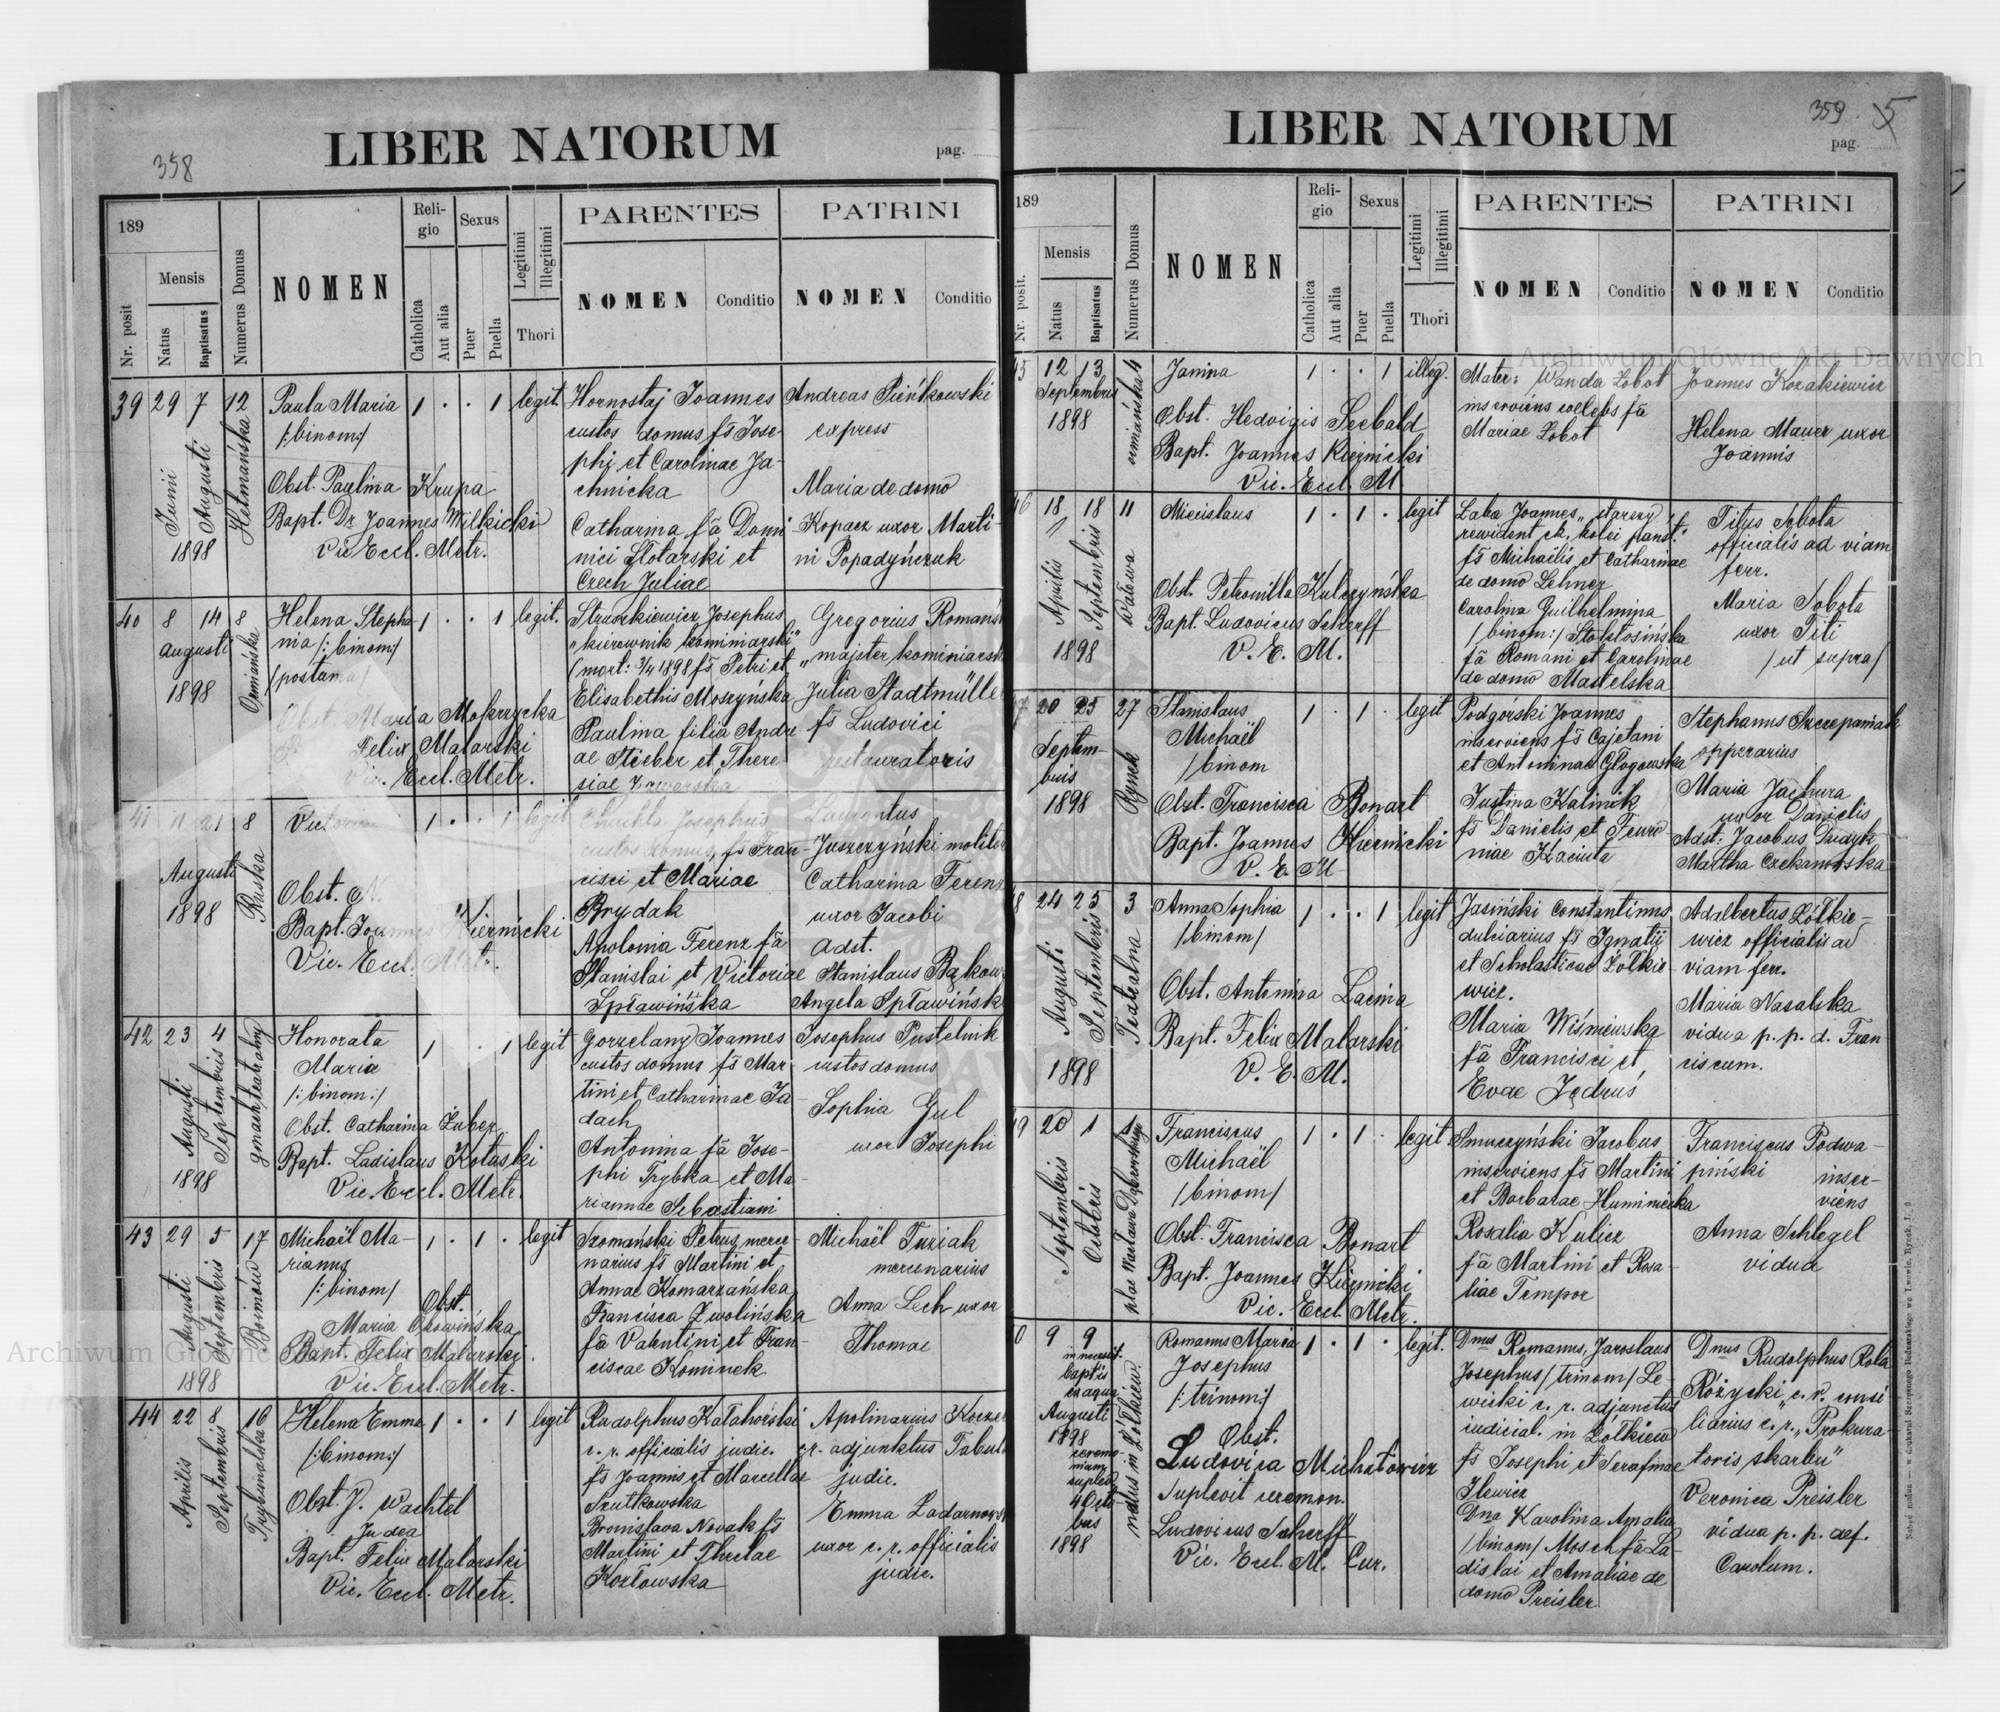 358
LIBER NATORUM
pag.
189
Nr. posit
Mensis
Natus
Baptisatus
Numerus Domus
NOMEN
Religio
Catholica
Aut alia
Sexus
Puer
Puella
Legitimi
Illegitimi
Thori
PARENTES
NOMEN
Conditio
PATRINI
NOMEN
Conditio
39 29 7 12
Junii
Augusti
1898
Hetmańska
Paula Maria
/:binom:/
Obst. Paulina Krupa
Bapt. Dr Joannes Wilkicki
Vic Eccl. Metr.
1 . . 1 legit.
Hornostaj Joannes
custos domus fs Jose-
phi et Carolinae Ja-
chnicka
Catharina fa Domi
nici Slotarski et
Czech Juliae
Andreas Pieńkowski
express
Maria de domo
Kopacz uxor Marti-
ni Popadyńczuk
40 8 14 8
Augusti
1898
Ormiańska
Helena Stepha
nia /:binom:/
Obst. Maria Mokrzycka
Felix Malarski
Vic. Eccl. Metr.
1 . . 1 legit.
Josephus
"kierownik kominiarski"
(mort: 3/4 1898 fs Petri et
Elisabethis Moszyńska
Paulina filia Andre
ae Stieber et There
siae
Gregorius
"majster
Julia
fs Ludovici
restauratoris
41 11 21 8
Augusti
1898
Ruska
Obst.
Bapt. Joannes Kiernicki
Vic. Eccl. Metr.
1 . . 1 legit
Josephus
custos domus, fs Fran-
cisci et Mariae
Brydak
Apolonia Ferenz fa
Stanislai et Victoriae
Spławińska
Laurentus
Juszczyński
Catharina
uxor Jacobi
Adst.
Stanislaus
Angela
42 23 4
Augusti
Septembris
1898
gmach teatralny
Honorata
Maria
/:binom:/
Obst. Catharina Zuber
Bapt. Ladislaus Kotaski
Vic. Eccl. Metr.
1 . 1 legit
Gorzelany Joannes
custos domus fs Mar-
tini et Catharinae Ja-
dach
Antonina fa Jose-
phi Trybka et Ma-
riannae Sebastiani
Josephus Pustelnik
custos domus
Sophia Gul
uxor Josephi
43 29 5 17
Augusti
Septembris
1898
Boimów
Michaël Ma-
rianus
/:binom/
Obst.
Maria
Bapt. Felix Malarski
Vic. Eccl. Metr.
1 . 1 . legit
Szomański Petrus merce-
narius fs Martini et
Annae Komarzańska
Francisca Zwolińska
fa Valentini et Fran-
ciscae Kominek
Michaël Tuziak
mercenarius
Anna Lech uxor
Thomae
44 22 8 16
Aprilis
Septembris
Trybunalska
Helena Emma
/:binom:/
Obst. J. Wachtel
Judea
Bapt. Felix Malarski
Vic. Eccl. Metr.
1 . . 1 legit
Rudolphus
c. r. officialis judic.
fs Joannis et Marcellae
Szutkowska
Bronislava Novak fs
Martini et Theclae
Kozłowska
Apolinarius
cr. adjunktus
judic.
Emma
uxor c. r. officialis
judic.
359 5
LIBER NATORUM
pag.
189
Nr. posit.
Mensis
Natus
Baptisatus
Numerus Domus
NOMEN
Religio
Catholica
Aut alia
Sexus
Puer
Puella
Legitimi
Illegitimi
Thori
PARENTES
NOMEN
Conditio
PATRINI
NOMEN
Conditio
12 13 4
Septembris
1898
Janina
Obst. Hedvigis Seebald
Bapt. Joannes Kiernicki
Vic. Eccl. M
1 . . 1 illeg.
Mater: Wanda Zobot
inserviens coelebs fa
Mariae Zobot
Joannes Kozakiewicz
Helena Mauer uxor
Joannis
18 18 11
Aprilis
Septembris
1898
Wałowa
Mieislaus
Obst. Petronilla Kulczyńska
Bapt. Ludovicus Scherff
V. E. M.
1 . 1 . legit
Laba Joannes "starszy
rewident ck. kolei państ."
fs Michaëlis et Catharinae
de domo Lehner
Carolina Guilhelmina
/binom:/
fa Romani et Carolinae
de domo
Titus Sobota
officialis ad viam
ferr.
Maria Sobota
uxor Titi
/ut supra/
20 25 27
Septem-
bris
1898
Rynek
Stanislaus
Michaël
/binom
Obst. Francisca Bonart
Bapt. Joannes Kiernicki
V. E. M
1 . 1 . legit
Podgórski Joannes
inserviens fs Cajetani
et Antoninae Głogowska
Justina Kalinik
fs Danielis et Feuro
niae
Stephanus Szczepaniak
opperarius
Maria Jachura
uxor Danielis
Adst: Jacobus Dudyk
Martha Czekanowska
24 25 3
Augusti
Septembris
1898
Teatralna
Anna Sophia
/binom/
Obst. Antonina Lacina
Bapt. Felix Malarski
V. E. M.
1 . . 1 legit
Jasiński Constantinus
dulciarius fs Ignatii
et Scholasticae Żółkie-
wicz.
Maria Wiśniewska
fa Francisci et
Evae Jędruś
Adalbertus Żółkie-
wicz officialis ad
viam ferr.
Maria Nasalska
vidua p. p. d. Fran
ciscum.
20 1 1
Septembris
Octobris
Franciscus
Michaël
/binom/
Obst. Francisca Bonart
Bapt. Joannes Kiernicki
Vic. Eccl. Metr.
1 . 1 . legit
Smuczyński Jacobus
inserviens fs Martini
et Barbarae Huminicka
Rosalia Kulicz
fa Martini et Rosa-
liae Tempor
Franciscus Podwa-
piński inser-
viens
Anna Schlegel
vidua
9 9
in necessit.
baptis
ex aqua
Augusti
1898
4 Octo
bris
1898
natus in Żółkiew.
Romanus Maria
Josephus
/:trinom:/
Obst.
Ludovica Michałowicz
Suplevit ceremon.
Ludovicus Scherff
Vic. Eccl. M. Cur.
1 . 1 . legit.
Dnus Romanus, Jaroslaus
Josephus /trinom/ Le-
wicki c. r. adjunctus
iudicial. in Żółkiew
fs Josephi et Serafinae
Ilewicz
Dna Karolina Amalia
/binom/ Mosch fa La-
dislai et Amaliae de
domo Preisler
Dnus Rudolphus Rola
Różycki, c. r. consi
liarius c. r. "Prokura-
toris skarbu"
Veronica Preisler
vidua p. p. def.
Carolum.
Archiwum Główne Akt Dawnych
Archiwum Główne